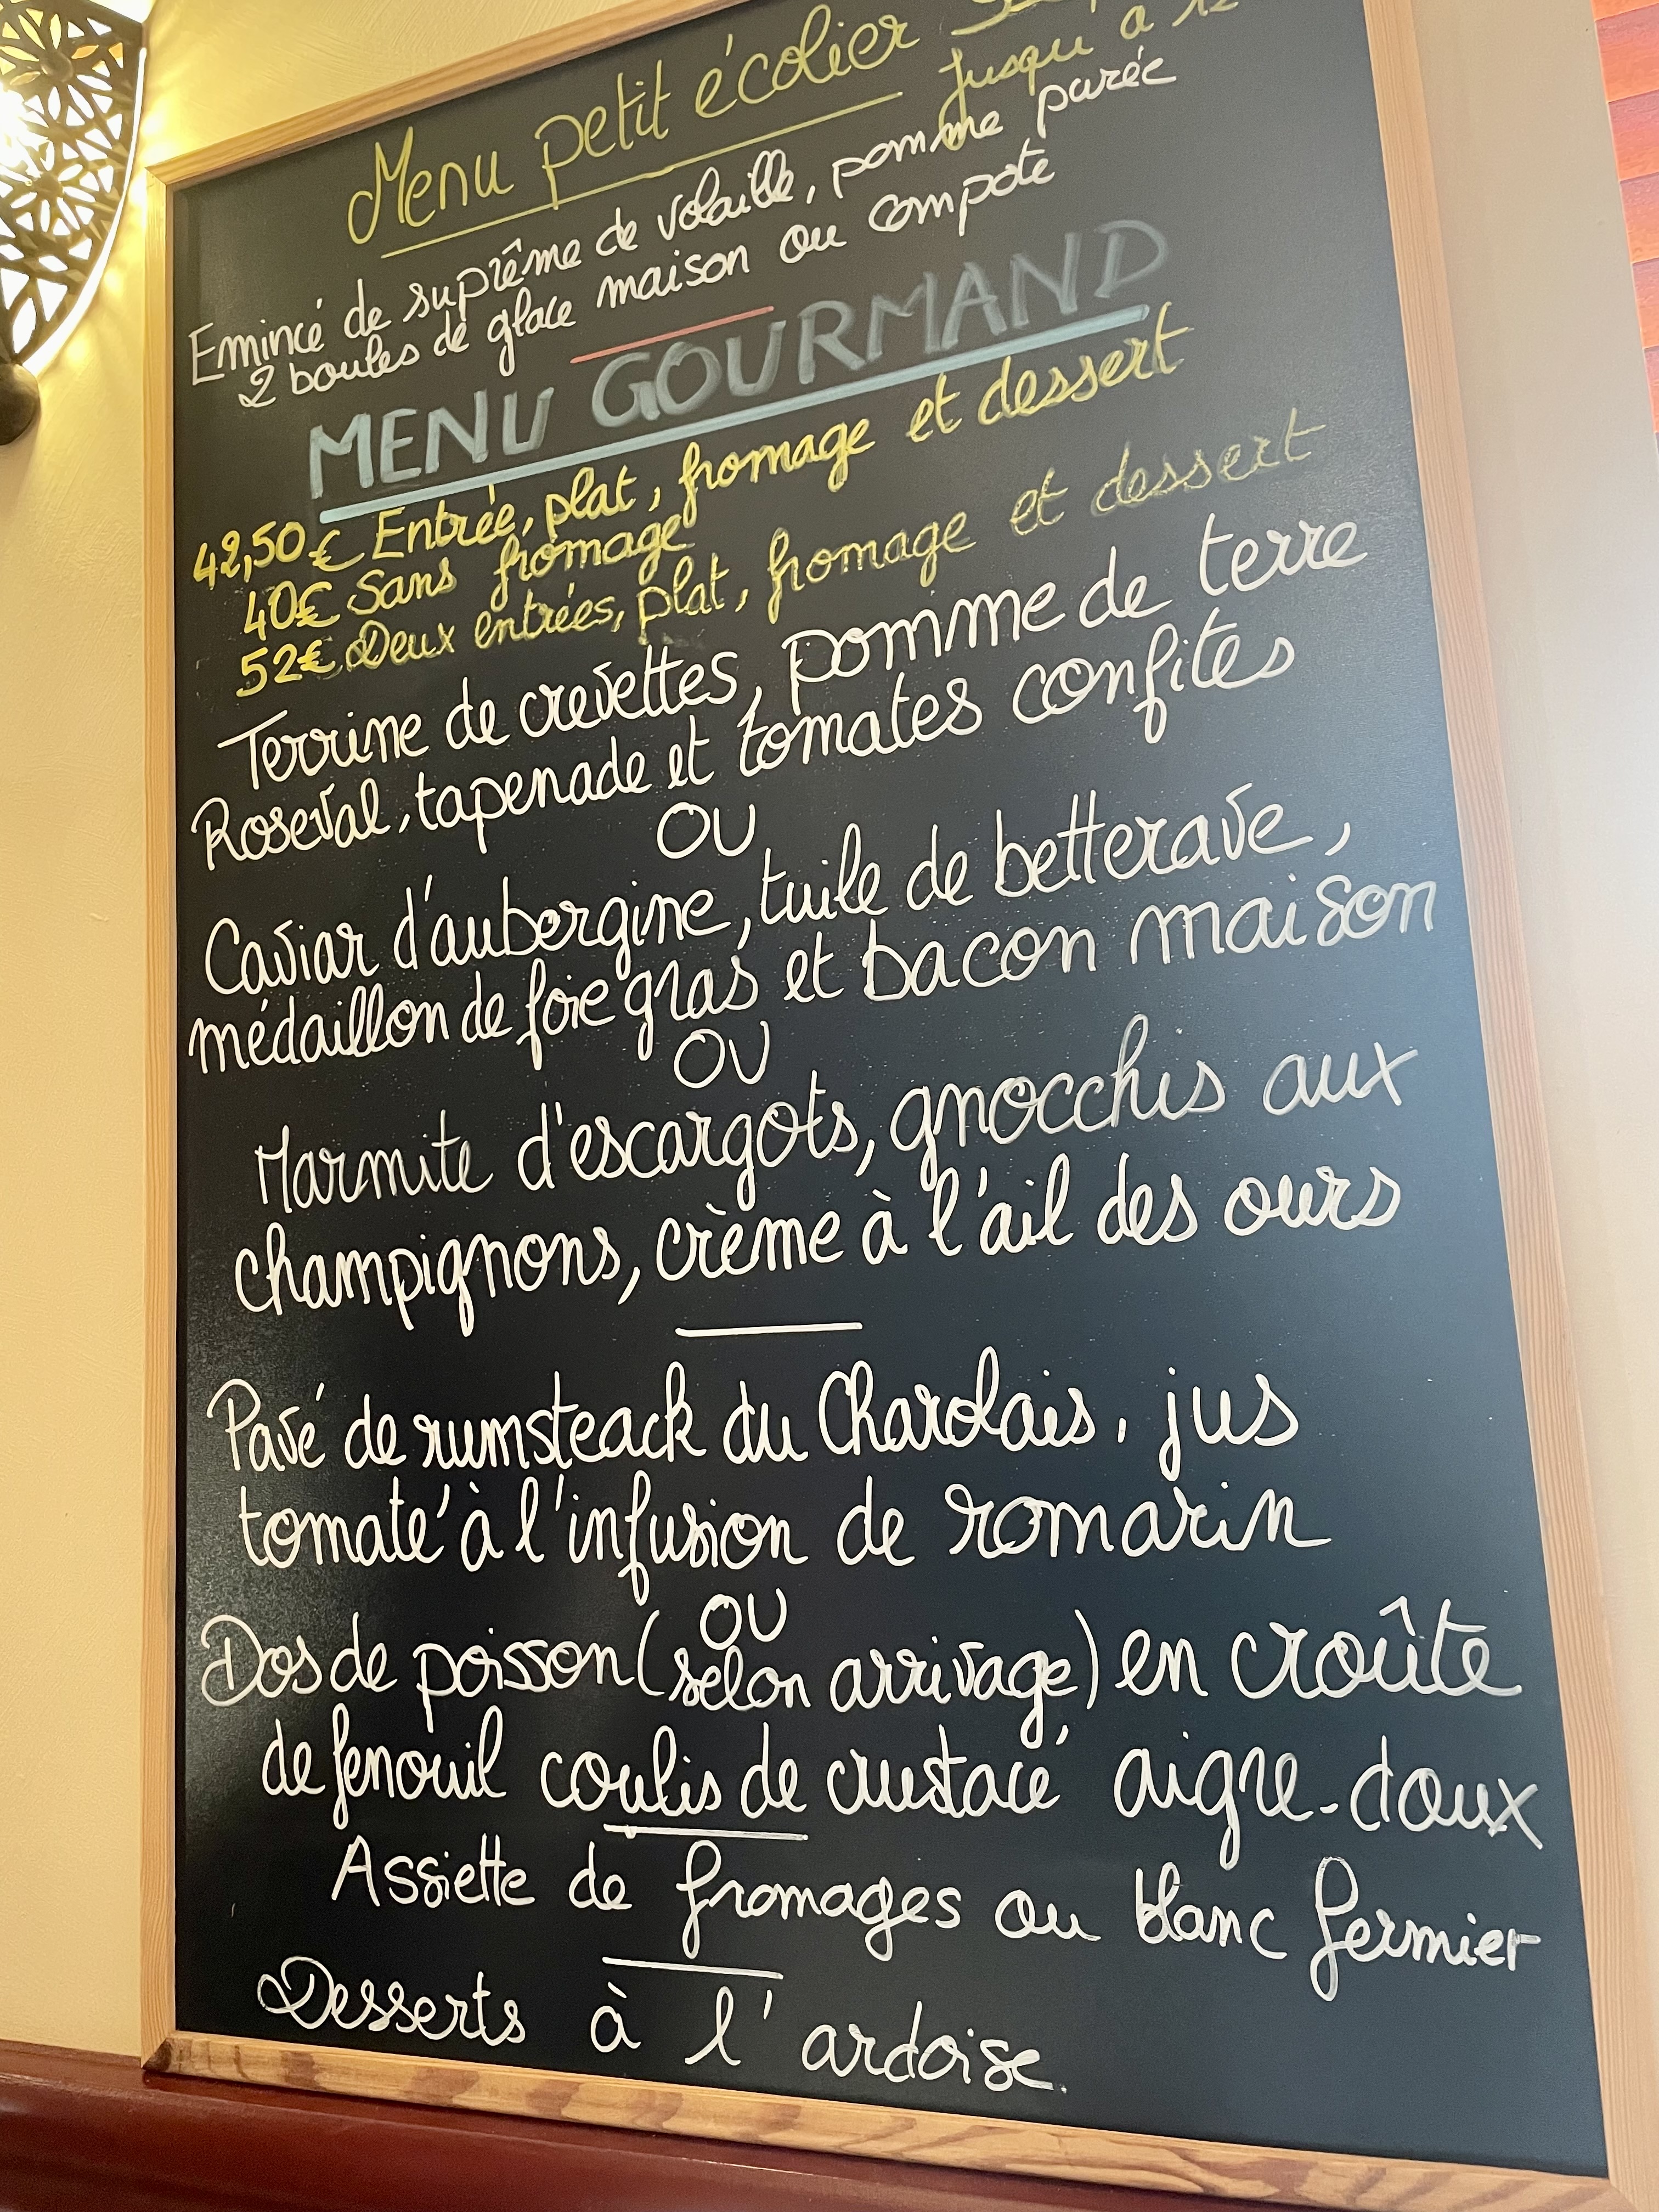 Menu petit écolier
jusqu'à 12
Emincé de suprême de volaille, pomme purée
2 boules de glace maison ou compote
MENU GOURMAND
42,50€ Entrée, plat, fromage et dessert
40€ Sans fromage
52€ Deux entrées, plat, fromage et dessert
Terrine de crevettes, pomme de terre
Roseval, tapenade et tomates confites
OU
Caviar d'aubergine, tuile de betterave,
médaillon de foie gras et bacon maison
OU
Marmite d'escargots, gnocchis aux
champignons, crème à l'ail des ours
Pavé de rumsteack du Charolais, jus
tomaté à l'infusion de romarin
OU
Dos de poisson (selon arrivage) en croûte
de fenouil coulis de crustacé aigre-doux
Assiette de fromages ou blanc fermier
Desserts à l'ardoise.